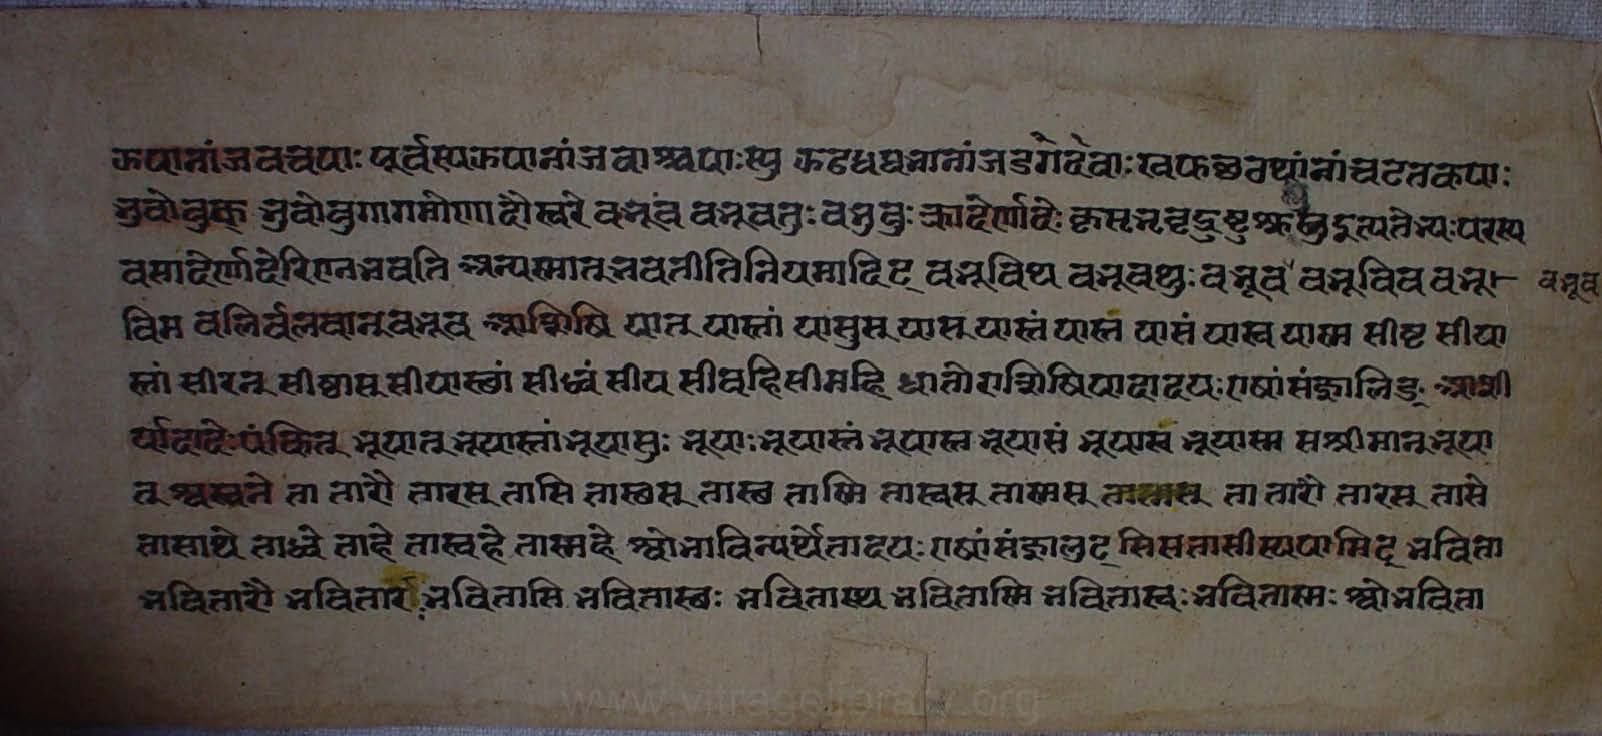 झपानां जबचपाः पूर्वस्य झपानां जबाश्चपाः स्यु झढधघभानां जडगदबाः खफछठथानां चटतकपाः
भुवो वुक् भुवो वुगागमो णादौ स्वरे बभूव बभूवतुः बभुवुः क्रादेर्णादेः कृसृभृवृद्रुष्टुश्रुस्रुद्रुत्यतेभ्यः परस्य
वसादेर्णादेरिण्न भवति अन्यस्मात् भवतीति नियमादिट् बभूविथ बभूवथुः बभूव बभूविव बभू बभूव
विम बलिर्बलवान् बभूव आशिषि यात् यास्तां यासुस् यास् यास्तं यास्त यासं यास्व यास्म सीष्ट सीया
स्तां सीरन् सीष्ठास् सीयास्थां सीध्वं सीय सीवहि सीमहि धातोराशिषि यादादयः एषां संज्ञा लिङ् आशी
र्यादादेः पं कित् भूयात् भूयास्तां भूयासुः भूयाः भूयास्तं भूयास्त भूयासं भूयास्व भूयास्म स श्रीमान् भूया
त् श्वस्तने ता तारौ तारस् तासि तास्थस् तास्थ तास्मि तास्वस् तास्मस् ता तारौ तारस् तासे
तासाथे ताध्वे ताहे तास्वहे तास्महे श्वोभाविन्यर्थे तादयः एषां संज्ञा लुट् सिसतासीस्यपामिट् भविता
भवितारौ भवितारः भवितासि भवितास्थः भवितास्थ भवितास्मि भवितास्वः भवितास्मः श्वो भविता